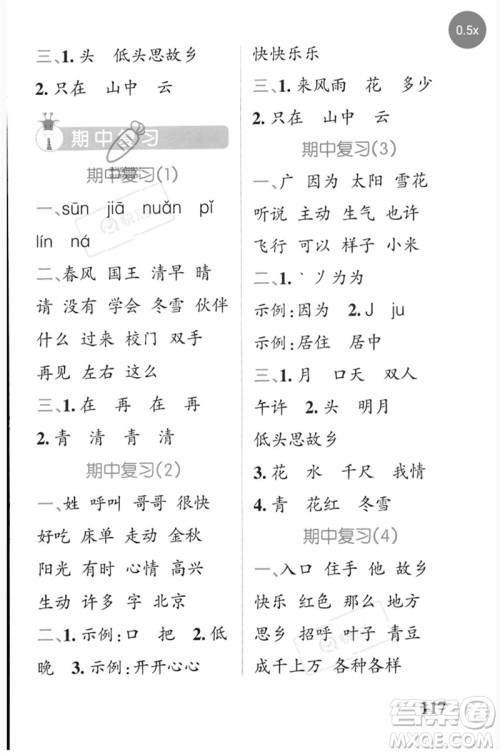 0.5x
三、1.头 低头思故乡
2.只在 山中 云
期中复习
期中复习(1)
一、sūn jiā nuǎn pǐ
lín ná
二、春风 国王 清早 晴
请 没有 学会 冬雪 伙伴
什么 过来 校门 双手
再见 左右 这二
三、1.在 再 在 再
2.青 清 青 清
期中复习(2)
一、姓 呼叫 哥哥 很快
好吃 床单 走动 金秋
阳光 有时 心情 高兴
生动 许多 字 北京
二、1.示例:口 把 2.低
晚 3.示例:开开心心
快快乐乐
三、1.来风雨 花 多少
2.只在 山中 云
期中复习(3)
一、广 因为 太阳 雪花
听说 主动 生气 也许
飞行 可以 样子 小米
二、1.丶丿为为
示例:因为 2.J ju
示例:居住 居中
三、1.月 口天 双人
午许 2.头 明月
低头思故乡
3.花 水 千尺 我情
4.青 花红 冬雪
期中复习(4)
一、入口 住手 他 故乡
快乐 红色 那么 地方
思乡 招呼 叶子 青豆
成千上万 各种各样
117
答案圈
MXQE.COM